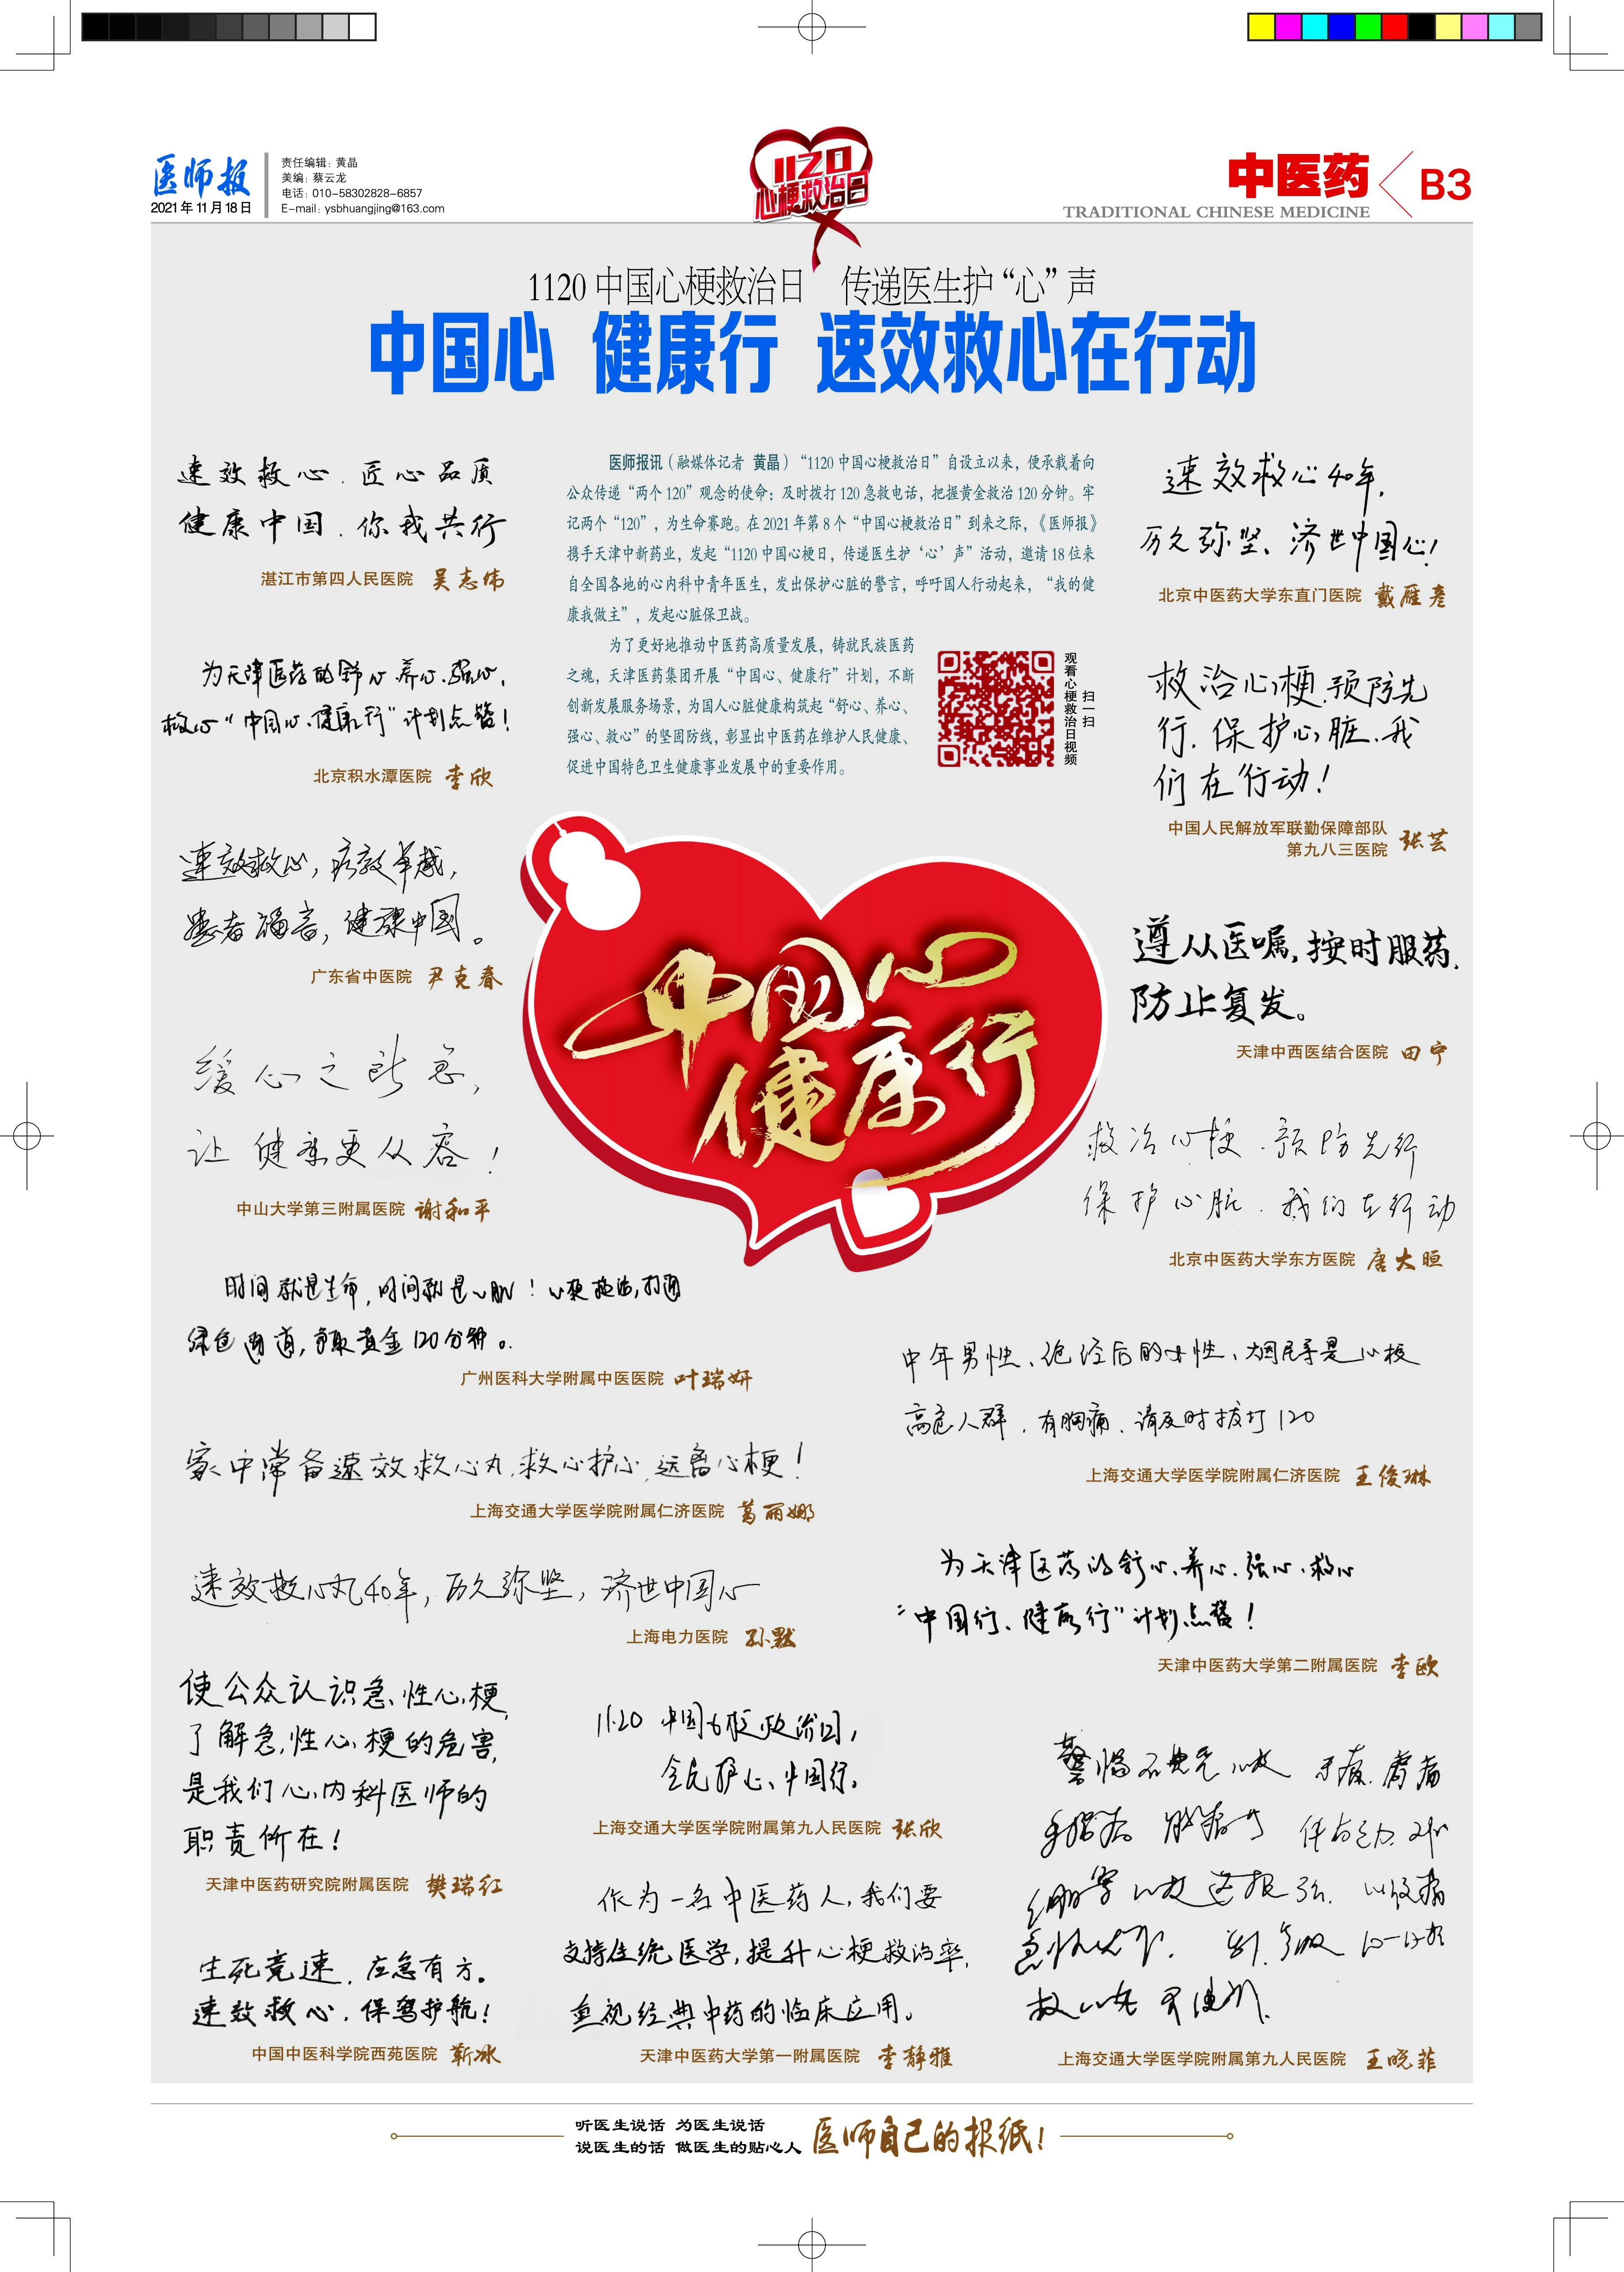 医师报
2021年11月18日
责任编辑：黄晶
美编：蔡云龙
电话：010-58302828-6857
E-mail：ysbhuangjing@163.com
1120
心梗救治日
中医药
TRADITIONAL CHINESE MEDICINE
B3
1120中国心梗救治日 传递医生护“心”声
中国心 健康行 速效救心在行动
医师报讯（融媒体记者 黄晶）“1120中国心梗救治日”自设立以来，便承载着向
公众传递“两个120”观念的使命：及时拨打120急救电话，把握黄金救治120分钟。牢
记两个“120”，为生命赛跑。在2021年第8个“中国心梗救治日”到来之际，《医师报》
携手天津中新药业，发起“1120中国心梗日，传递医生护‘心’声”活动，邀请18位来
自全国各地的心内科中青年医生，发出保护心脏的警言，呼吁国人行动起来，“我的健
康我做主”，发起心脏保卫战。
为了更好地推动中医药高质量发展，铸就民族医药
之魂，天津医药集团开展“中国心、健康行”计划，不断
创新发展服务场景，为国人心脏健康构筑起“舒心、养心、
强心、救心”的坚固防线，彰显出中医药在维护人民健康、
促进中国特色卫生健康事业发展中的重要作用。
扫一扫
观看心梗救治日视频
速效救心．匠心品质
健康中国．你我共行
湛江市第四人民医院 吴志伟
为天津医药的舒心、养心、强心、
救心“中国心、健康行”计划点赞！
北京积水潭医院 李欣
速效救心，疗效卓越，
患者福音，健康中国。
广东省中医院 尹克春
缓心之所急，
让健康更从容！
中山大学第三附属医院 谢和平
时间就是生命，时间就是心肌！心梗救治，打通
绿色通道，争取黄金120分钟。
广州医科大学附属中医医院 叶瑞妍
家中常备速效救心丸，救心护心，远离心梗！
上海交通大学医学院附属仁济医院 葛丽娜
速效救心丸40年，历久弥坚，济世中国心
上海电力医院 孙默
使公众认识急性心梗，
了解急性心梗的危害，
是我们心内科医师的
职责所在！
天津中医药研究院附属医院 樊瑞红
生死竞速，应急有方。
速效救心，保驾护航！
中国中医科学院西苑医院 靳冰
速效救心40年，
历久弥坚、济世中国心！
北京中医药大学东直门医院 戴雁彦
救治心梗，预防先
行，保护心脏，我
们在行动！
中国人民解放军联勤保障部队
第九八三医院 张芸
遵从医嘱，按时服药，
防止复发。
天津中西医结合医院 田宁
中国心
健康行
救治心梗．预防先行
保护心脏．我们在行动
北京中医药大学东方医院 唐大晅
中年男性、绝经后的女性、烟民等是心梗
高危人群，有胸痛，请及时拨打120
上海交通大学医学院附属仁济医院 王俊琳
为天津医药的舒心、养心、强心、救心
“中国行、健康行”计划点赞！
天津中医药大学第二附属医院 李欧
11.20 中国心梗救治日，
全民护心、中国行。
上海交通大学医学院附属第九人民医院 张欣
作为一名中医药人，我们要
支持传统医学，提升心梗救治率，
重视经典中药的临床应用。
天津中医药大学第一附属医院 李静雅
警惕不典型心梗 牙痛、肩痛
上海交通大学医学院附属第九人民医院 王晓菲
听医生说话 为医生说话
说医生的话 做医生的贴心人
医师自己的报纸！